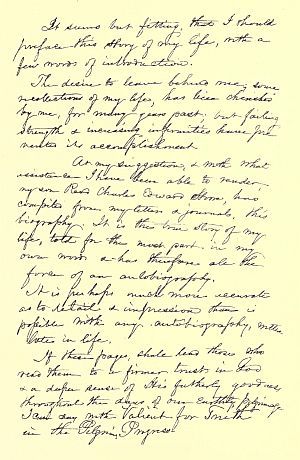 It seems but fitting, that I should
preface this story of my life, with a
few words of introduction.
The desire to leave behind me, some
recollections of my life, has been cherished
by me, for many years past; but failing
strength & increasing infirmities have pre
vented its accomplishment
At my suggestion, & with what
assistance I have been able to render,
my son Rev Charles Edward Stowe, has
compiled from my letters & journals, this
biography. It is the true story of my
life, told for the most part, in my
own words & has therefore all the
force of an autobiography.
It is perhaps much more accurate
as to detail & impression than is
possible with any autobiography, written
late in life.
If these pages, shall lead those who
read them to a firmer trust in God
& a deeper sense of His fatherly goodness
throughout the days of our earthly pilgrimage
I can say with Valient for Truth
in the Pilgrims Progress